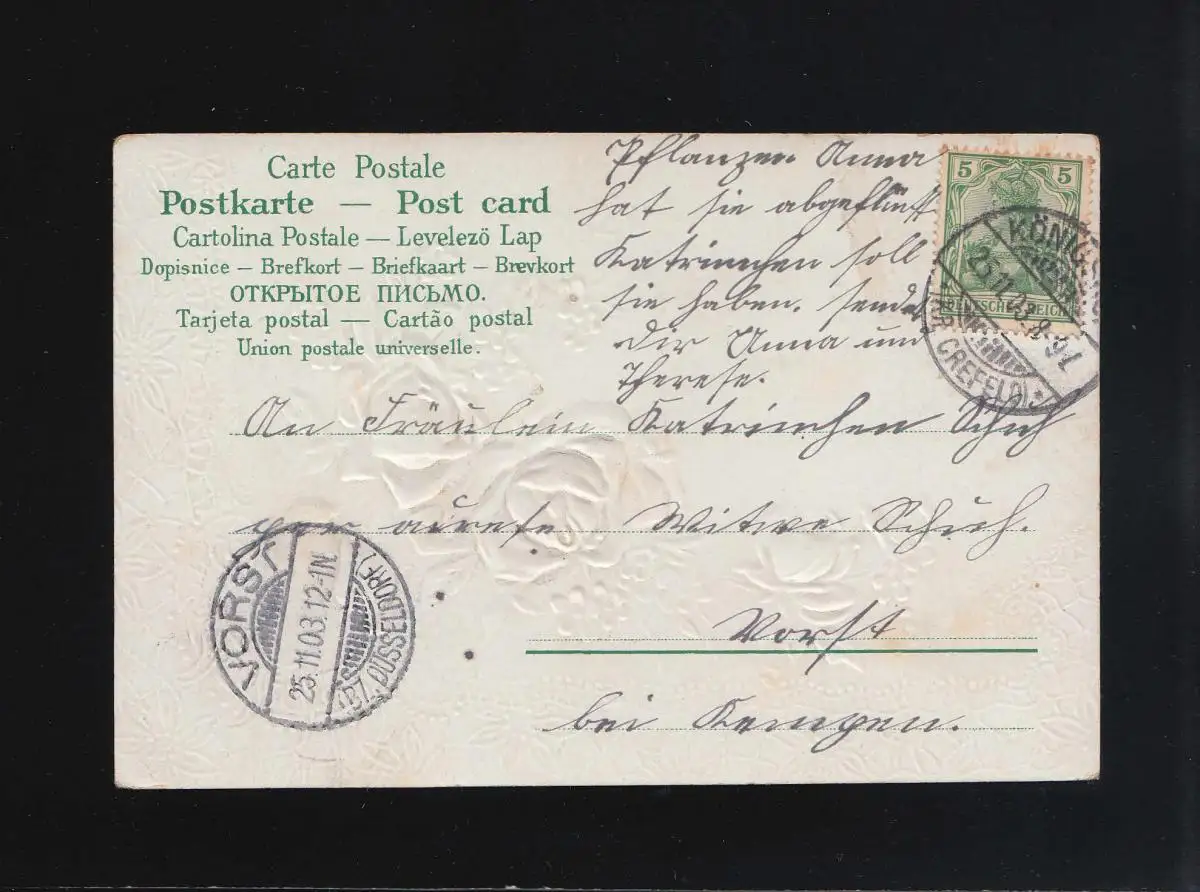 Carte Postale
Postkarte — Post card
Cartolina Postale — Levelező Lap
Dopisnice — Brefkort — Briefkaart — Brevkort
ОТКРЫТОЕ ПИСЬМО.
Tarjeta postal — Cartão postal
Union postale universelle.
Pflanzen Anna
hat sie abgeflückt
Katrinchen soll
sie haben. sendet
dir Anna und
Therese.
5 5
DEUTSCHES REICH
KÖNIGS
25.11.03. 8-9V.
CREFELD) *
An Fräulein Katrinchen Schuh
per Witwe Schuh.
Vorst
bei Kempen.
VORST
25.11.03.12-1N.
(BZ. DÜSSELDORF)